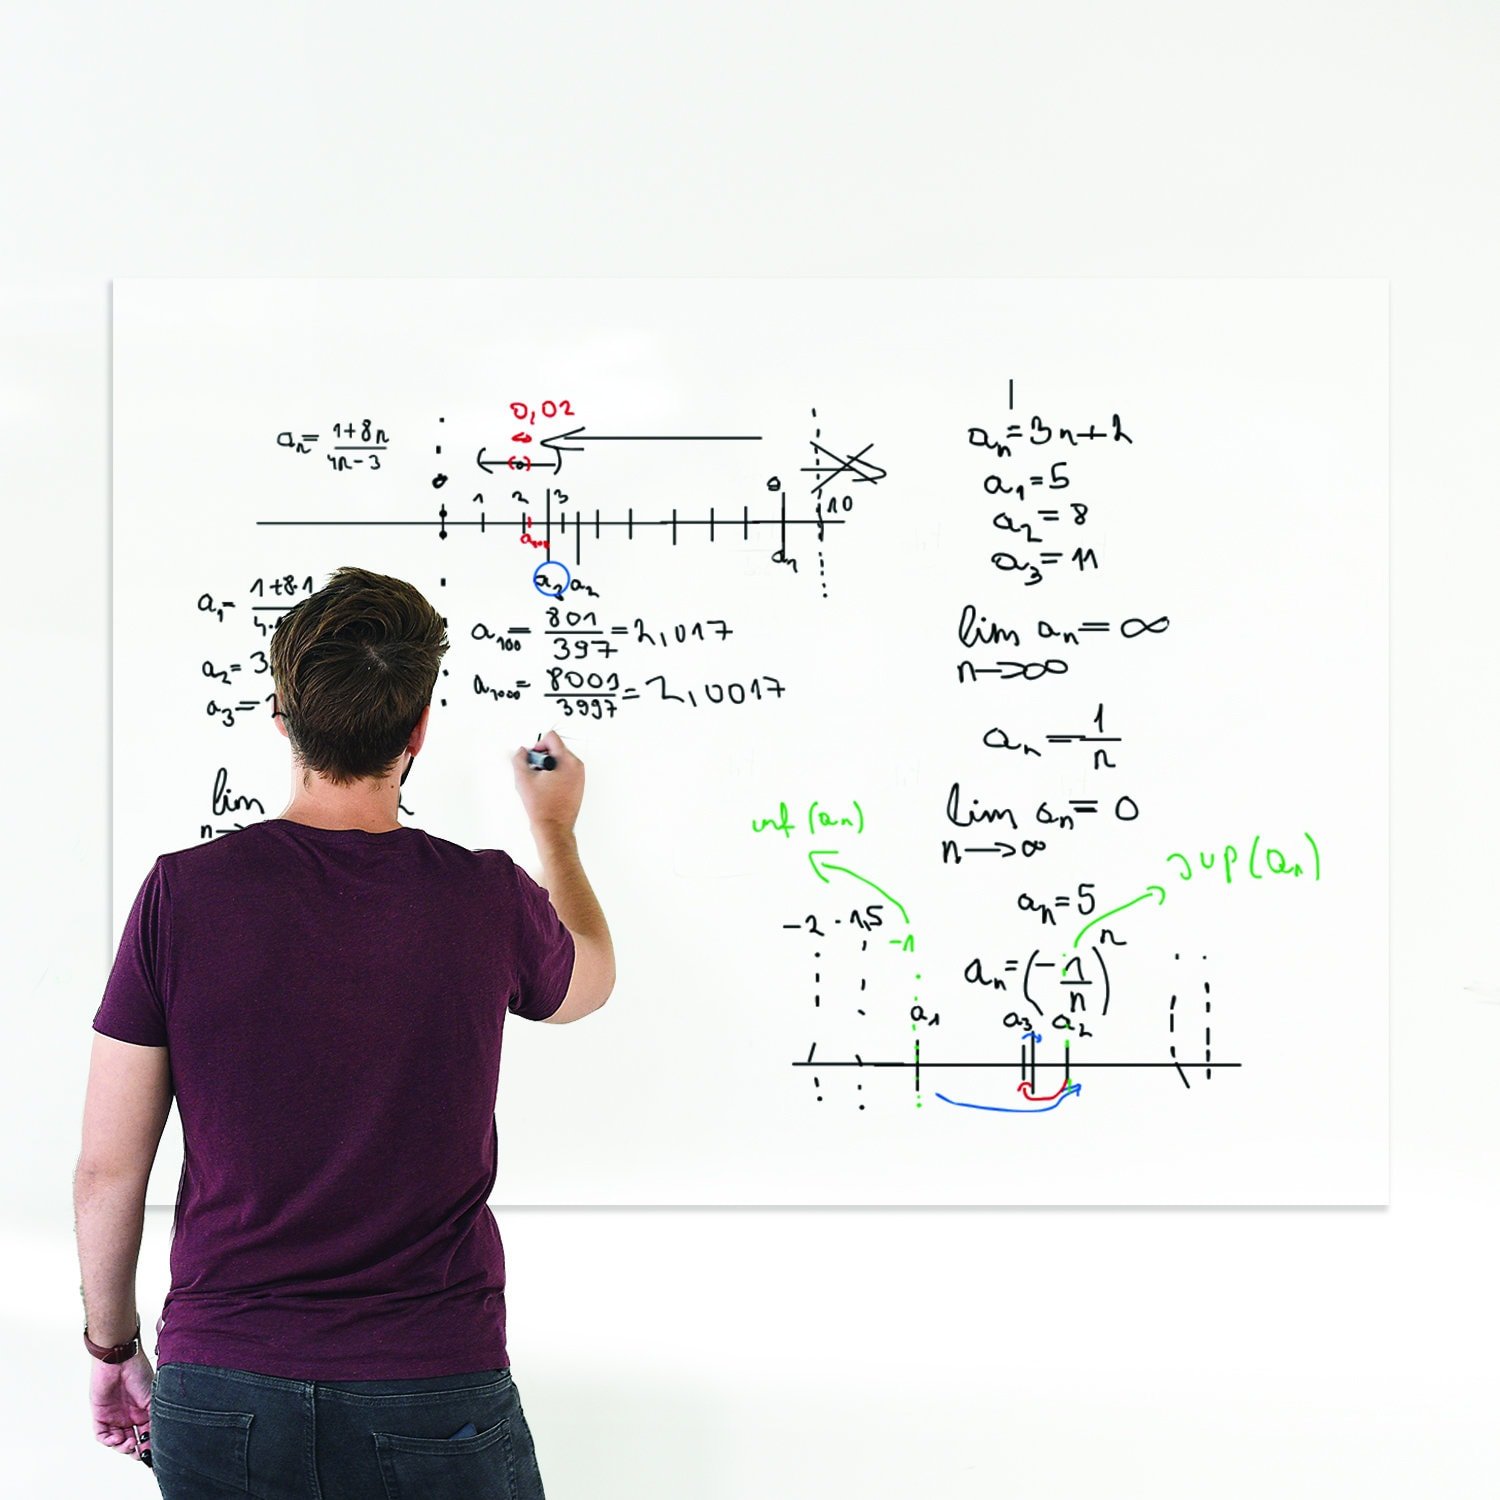 0,02
aₙ = (1+8n)/(4n-3)
0 1 2 3 9 10
a₁₀₀
a₃ a₂ a₁
a₁ = 1+8·1
4·
a₂ = 3
a₃ =
a₁₀₀ = 801/397 = 2,017
a₁₀₀₀ = 8001/3997 = 2,0017
lim
n→
aₙ = 3n+2
a₁ = 5
a₂ = 8
a₃ = 11
lim aₙ = ∞
n→∞
aₙ = 1/n
lim aₙ = 0
n→∞
inf (aₙ)
sup (aₙ)
aₙ = 5
-2 -1,5 -1
aₙ = (-1/n)ⁿ
a₁ a₃ a₂